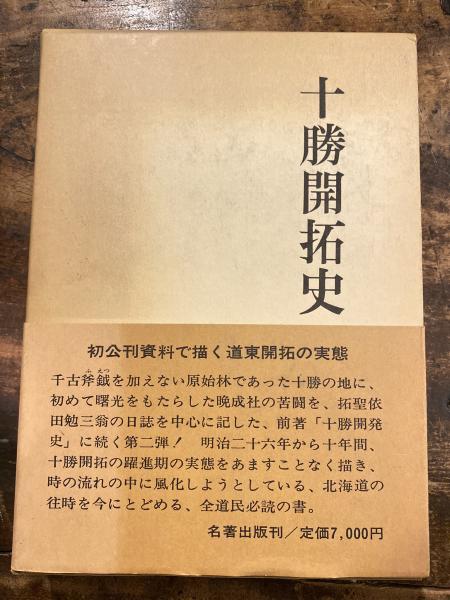 十勝開拓史
初公刊資料で描く道東開拓の実態
千古斧鉞を加えない原始林であった十勝の地に、
初めて曙光をもたらした晩成社の苦闘を、拓聖依
田勉三翁の日誌を中心に記した、前著「十勝開発
史」に続く第二弾! 明治二十六年から十年間、
十勝開拓の躍進期の実態をあますことなく描き、
時の流れの中に風化しようとしている、北海道の
往時を今にとどめる、全道民必読の書。
名著出版刊/定価7,000円